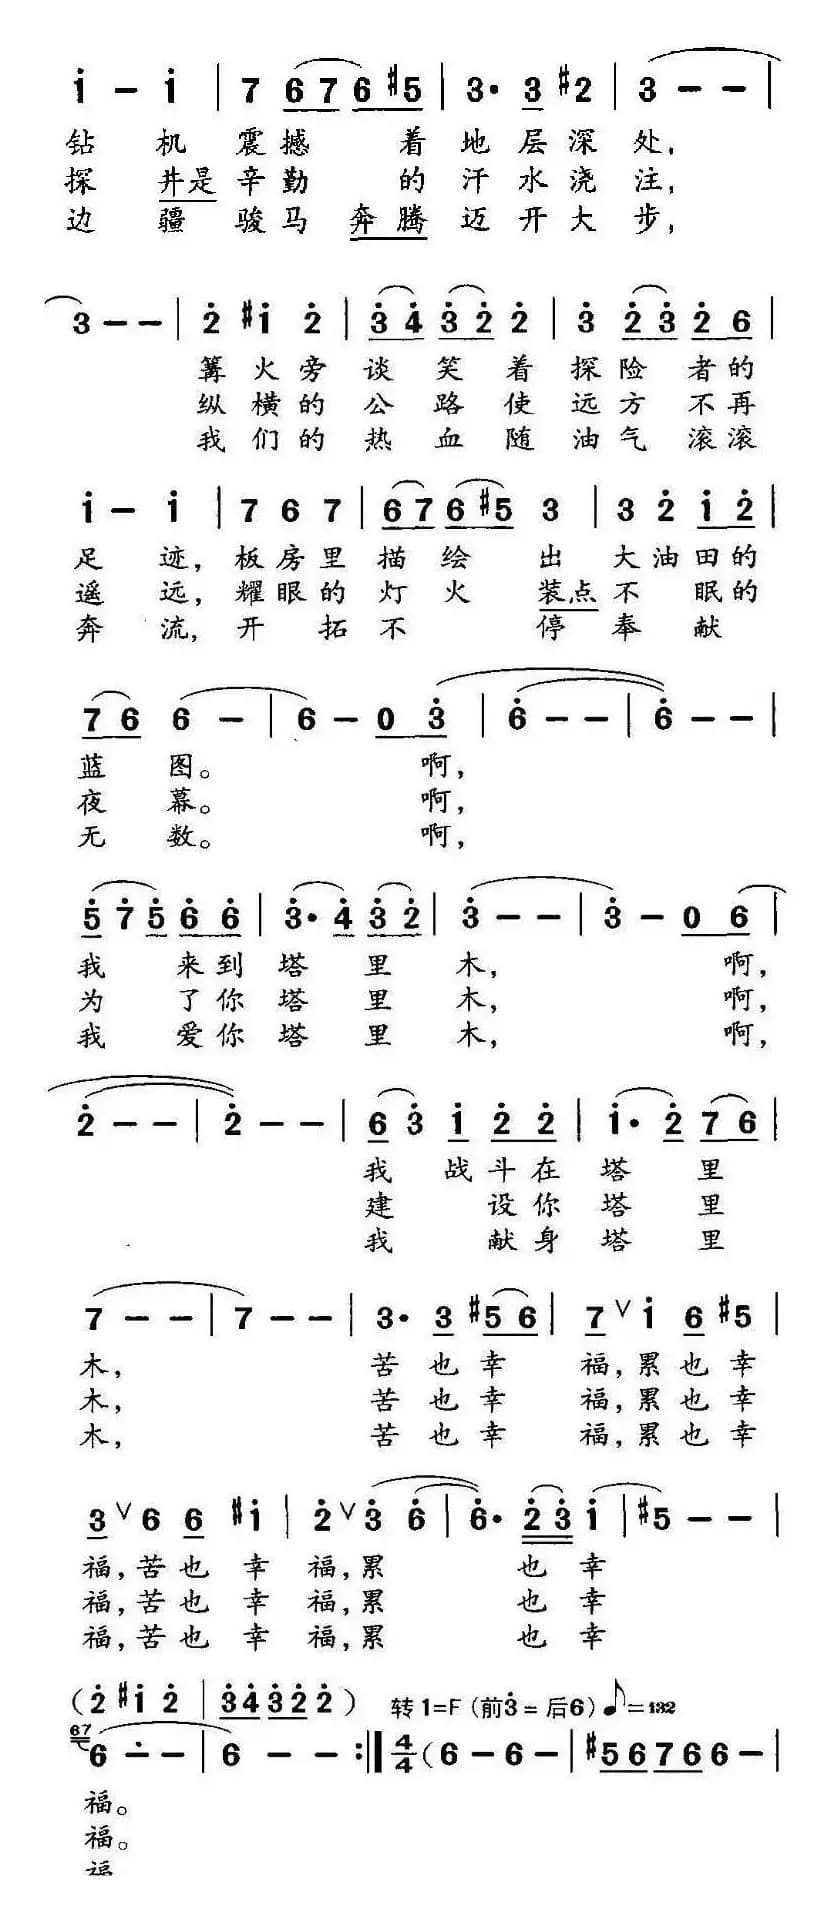 i - i | 7 6 7 6 #5 | 3· 3 #2 | 3 - - |
钻 机 震 撼 着 地 层 深 处,
探 井是 辛 勤 的 汗 水 浇 注,
边 疆 骏 马 奔 腾 迈 开 大 步,
3 - - | 2̇ #i 2̇ | 3̇ 4̇ 3̇ 2̇ 2̇ | 3̇ 2̇ 3̇ 2̇ 6 |
篝 火 旁 谈 笑 着 探 险 者 的
纵 横 的 公 路 使 远 方 不 再
我 们 的 热 血 随 油 气 滚 滚
i - i | 7 6 7 | 6 7 6 #5 3 | 3 2̇ i 2̇ |
足 迹, 板 房 里 描 绘 出 大 油 田 的
遥 远, 耀 眼 的 灯 火 装点 不 眠 的
奔 流, 开 拓 不 停 奉 献
7 6 6 - | 6 - 0 3̇ | 6̇ - - | 6̇ - - |
蓝 图。 啊,
夜 幕。 啊,
无 数。 啊,
5̇ 7̇ 5̇ 6̇ 6̇ | 3̇· 4̇ 3̇ 2̇ | 3̇ - - | 3̇ - 0 6 |
我 来 到 塔 里 木, 啊,
为 了 你 塔 里 木, 啊,
我 爱 你 塔 里 木, 啊,
2̇ - - | 2̇ - - | 6 3̇ i 2̇ 2̇ | i· 2̇ 7 6 |
我 战 斗 在 塔 里
建 设 你 塔 里
我 献 身 塔 里
7 - - | 7 - - | 3· 3 #5 6 | 7 ∨ i 6 #5 |
木, 苦 也 幸 福, 累 也 幸
木, 苦 也 幸 福, 累 也 幸
木, 苦 也 幸 福, 累 也 幸
3 ∨ 6 6 #i | 2̇ ∨ 3̇ 6̇ | 6̇· 2̇ 3̇ i | #5 - - |
福, 苦 也 幸 福, 累 也 幸
福, 苦 也 幸 福, 累 也 幸
福, 苦 也 幸 福, 累 也 幸
(2̇ #i 2̇ | 3̇ 4̇ 3̇ 2̇ 2̇) 转1=F (前3̇=后6) ♪=132
67 6 - - | 6 - - :‖ 4/4 (6 - 6 - | #5 6 7 6 6 - |
福。
福。
福